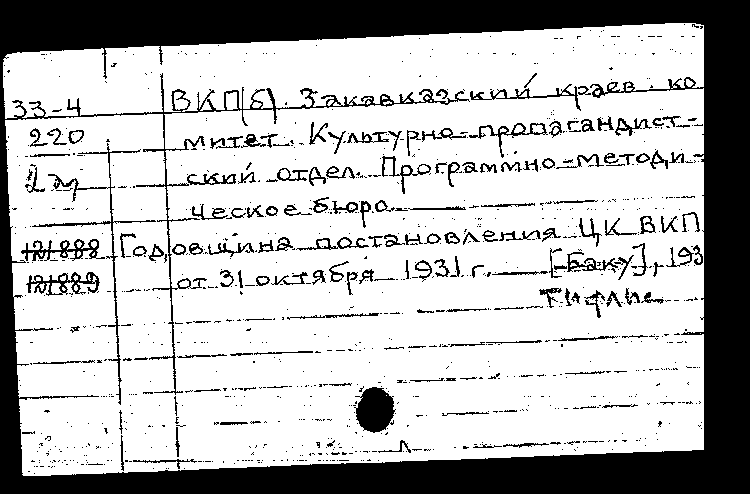 33-4 ВКП(б). Закавказский краев. ко
220 митет. Культурно-пропагандист-
2 ский отдел. Программно-методи-
ческое бюро.
121888 Годовщина постановления ЦК ВКП
121889 от 31 октября 1931 г. [Баку], 193
Тифлис